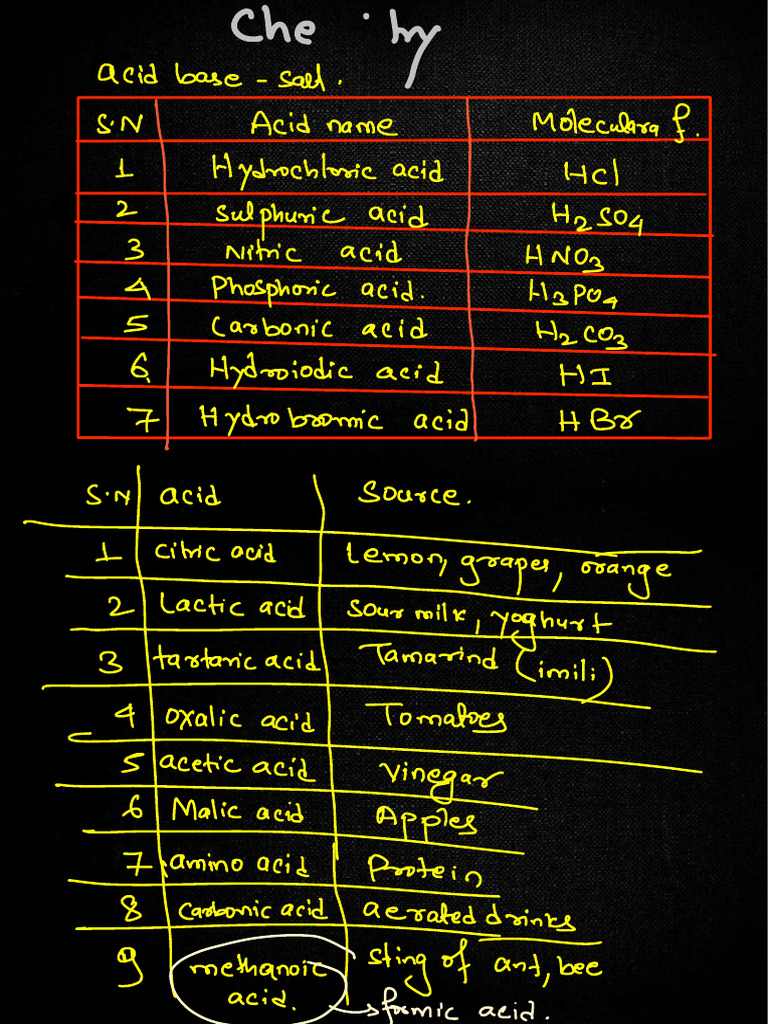 Che hy
acid base - salt.
S.N Acid name Moleculara f.
1 Hydrochloric acid HCl
2 Sulphuric acid H2SO4
3 Nitric acid. HNO3
4 Phosphoric acid. H3PO4
5 Carbonic acid H2CO3
6 Hydroiodic acid HI
7 Hydrobromic acid HBr
S.N acid Source.
1 citric acid Lemon, grapes, orange
2 Lactic acid Sour milk, yoghurt
3 tartaric acid Tamarind (imili)
4 oxalic acid Tomatoes
5 acetic acid Vinegar
6 Malic acid Apples
7 amino acid Protein
8 Carbonic acid aerated drinks
9 methanoic sting of ant, bee
acid. → formic acid.